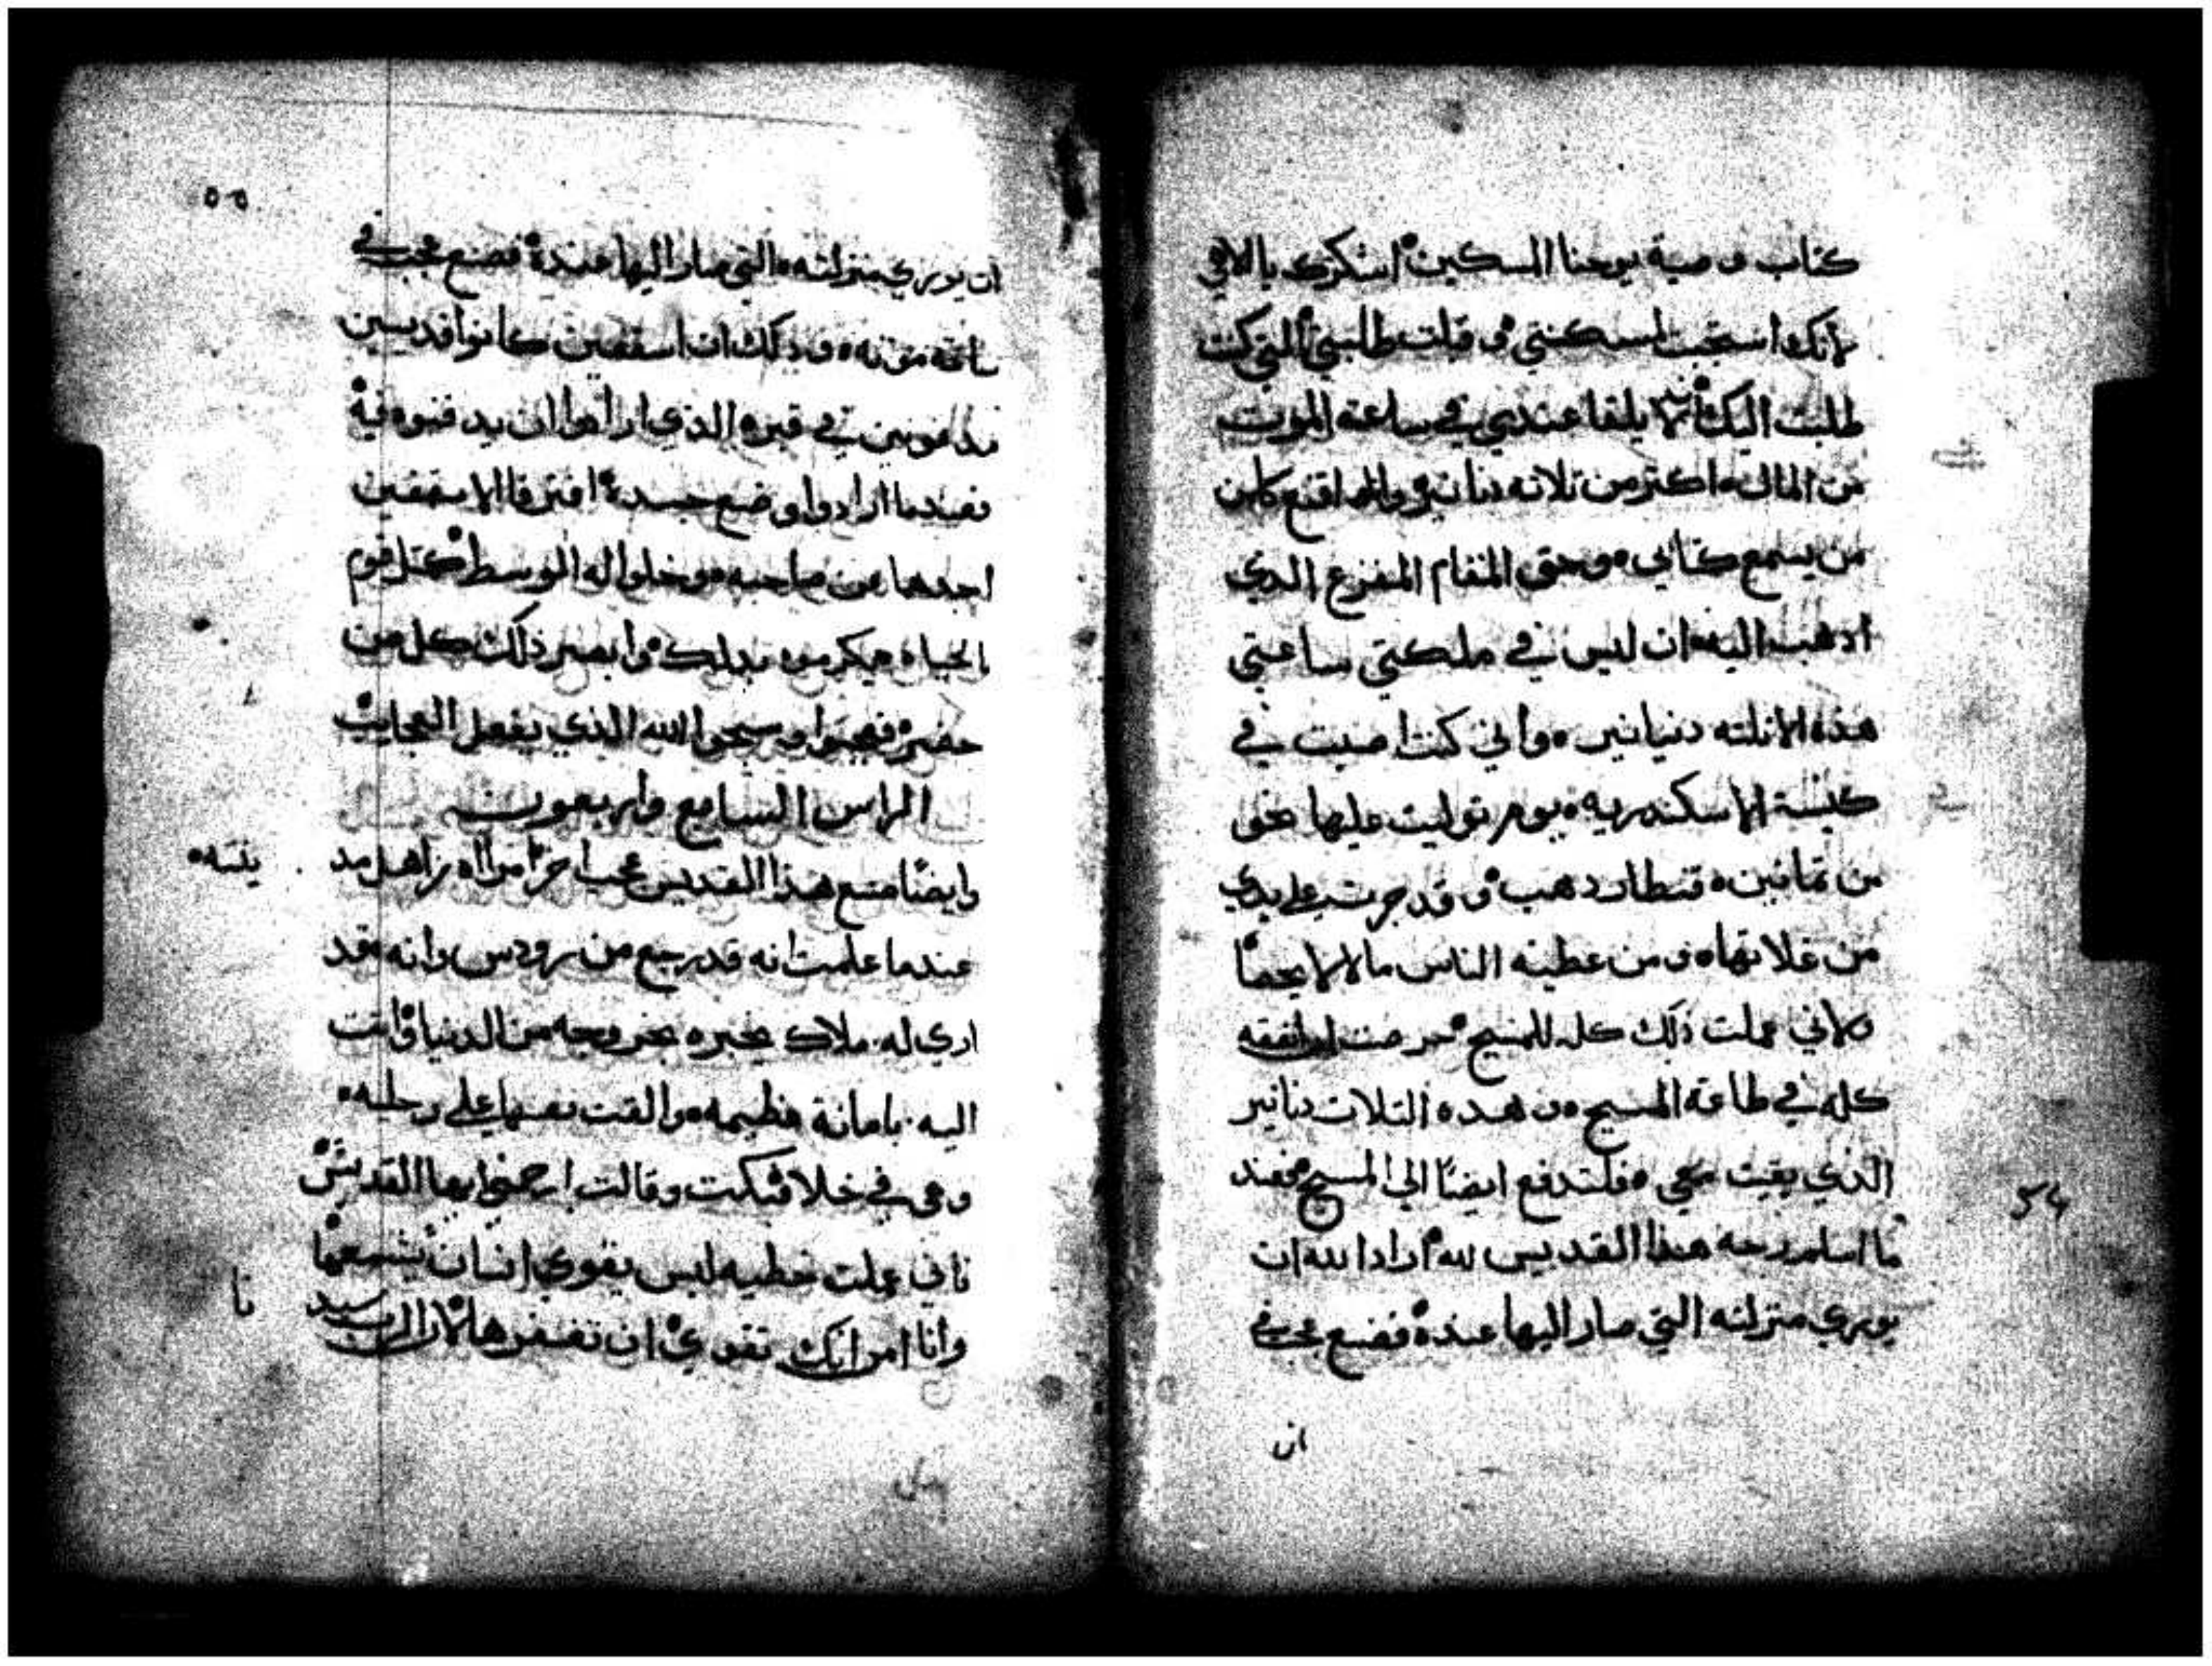 كتاب وصية يوحنا المسكين اشكرك يا الاهي
لانك استجبت لمسكنتي و قبلت طلبتي التي كنت
طلبت اليك انه لا يلقا عندي في ساعة الموت
من المال اكتر من تلاته دنانير
من يسمع كتابي وحق المقام المفزع الدي
ادهب اليه ان ليس في ملكتي ساعتي
هذه الا تلته دنيانير واني كنت اصبت في
كنيسة الاسكندريه يوم توليت عليها نحو
من تمانين قنطار دهب و قد جرت علي يدي
من غلاتها و من عطية الناس ما لا لا يحصا
و لاني عملت ذلك كله للمسيح حرصت لنفقه
كله في طاعة المسيح و هده التلات دنانير
الذي بقيت معي فلتدفع ايضًا الي المسيح فعند
ما اسلم روحه هذا القديس لله اراد الله ان
يوري منزلته التي صار اليها عنده فصنع عجب في
ان
54
٥٥
ان يوري منزلته التي صار اليها عنده فصنع عجب في
ساعة موته و ذلك ان اسقفين كانوا قديسين
مدفونين في قبره الذي ارادوا ان يدفنوه فيه
فعندما ارادوا وضع جسده افترقا الاسقفين
احدهما عن صاحبه و خلوا له الوسط كمتل قوم
بالحياه يكرموه بدلك و ابصر ذلك كل من
حضر فعجبوا و سبحوا الله الذي يفعل العجايب
الراس السابع واربعون
وايضًا صنع هذا القديس عجبا اخر امراه من اهل مد
ينته
عندما علمت انه قد رجع من رودس وانه قد
اري له ملاك يخبره بخروجه من الدنيا و اتت
اليه بامانة عظيمه و القت نفسها علي رجليه
وهي في خلا فبكت وقالت ارحمني ايها القديس
فاني عملت خطيه ليس يقوي انسان يسمعها
وانا امر انك تقوي ان تغفرها لان الرب سيد
نا